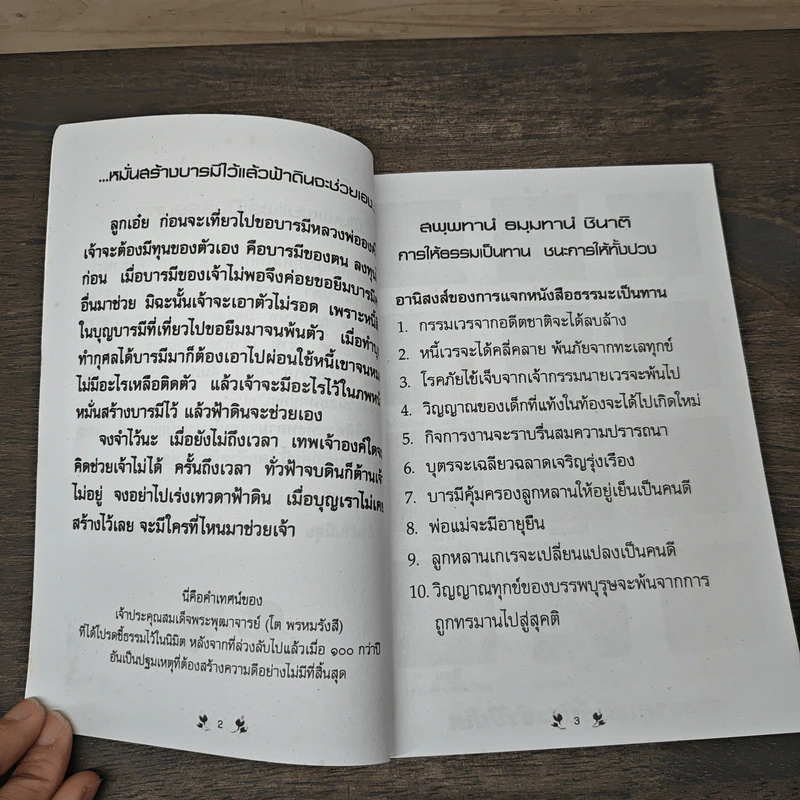 ...หมั่นสร้างบารมีไว้แล้วฟ้าดินจะช่วยเอง...
ลูกเอ๋ย ก่อนจะเที่ยวไปขอบารมีหลวงพ่อองค์
เจ้าจะต้องมีทุนของตัวเอง คือบารมีของตน ลงทุน
ก่อน เมื่อบารมีของเจ้าไม่พอจึงค่อยขอยืมบารมี
อื่นมาช่วย มิฉะนั้นเจ้าจะเอาตัวไม่รอด เพราะหนี้
ในบุญบารมีที่เที่ยวไปขอยืมมาจนพ้นตัว เมื่อทำ
ทำกุศลได้บารมีมาก็ต้องเอาไปผ่อนใช้หนี้เขาจน
ไม่มีอะไรเหลือติดตัว แล้วเจ้าจะมีอะไรไว้ในภพ
หมั่นสร้างบารมีไว้ แล้วฟ้าดินจะช่วยเอง
จงจำไว้นะ เมื่อยังไม่ถึงเวลา เทพเจ้าองค์ใด
คิดช่วยเจ้าไม่ได้ ครั้นถึงเวลา ทั่วฟ้าจบดินก็ต้านเจ้า
ไม่อยู่ จงอย่าไปเร่งเทวดาฟ้าดิน เมื่อบุญเราไม่เคย
สร้างไว้เลย จะมีใครที่ไหนมาช่วยเจ้า
นี่คือคำเทศน์ของ
เจ้าประคุณสมเด็จพระพุฒาจารย์ (โต พรหมรังสี)
ที่ได้โปรดชี้ธรรมไว้ในนิมิต หลังจากที่ล่วงลับไปแล้วเมื่อ ๑๐๐ กว่าปี
อันเป็นปฐมเหตุที่ต้องสร้างความดีอย่างไม่มีที่สิ้นสุด
2
สพฺพทานํ ธมฺมทานํ ชินาติ
การให้ธรรมเป็นทาน ชนะการให้ทั้งปวง
อานิสงส์ของการแจกหนังสือธรรมะเป็นทาน
1. กรรมเวรจากอดีตชาติจะได้ลบล้าง
2. หนี้เวรจะได้คลี่คลาย พ้นภัยจากทะเลทุกข์
3. โรคภัยไข้เจ็บจากเจ้ากรรมนายเวรจะพ้นไป
4. วิญญาณของเด็กที่แท้งในท้องจะได้ไปเกิดใหม่
5. กิจการงานจะราบรื่นสมความปรารถนา
6. บุตรจะเฉลียวฉลาดเจริญรุ่งเรือง
7. บารมีคุ้มครองลูกหลานให้อยู่เย็นเป็นคนดี
8. พ่อแม่จะมีอายุยืน
9. ลูกหลานเกเรจะเปลี่ยนแปลงเป็นคนดี
10. วิญญาณทุกข์ของบรรพบุรุษจะพ้นจากการ
ถูกทรมานไปสู่สุคติ
3